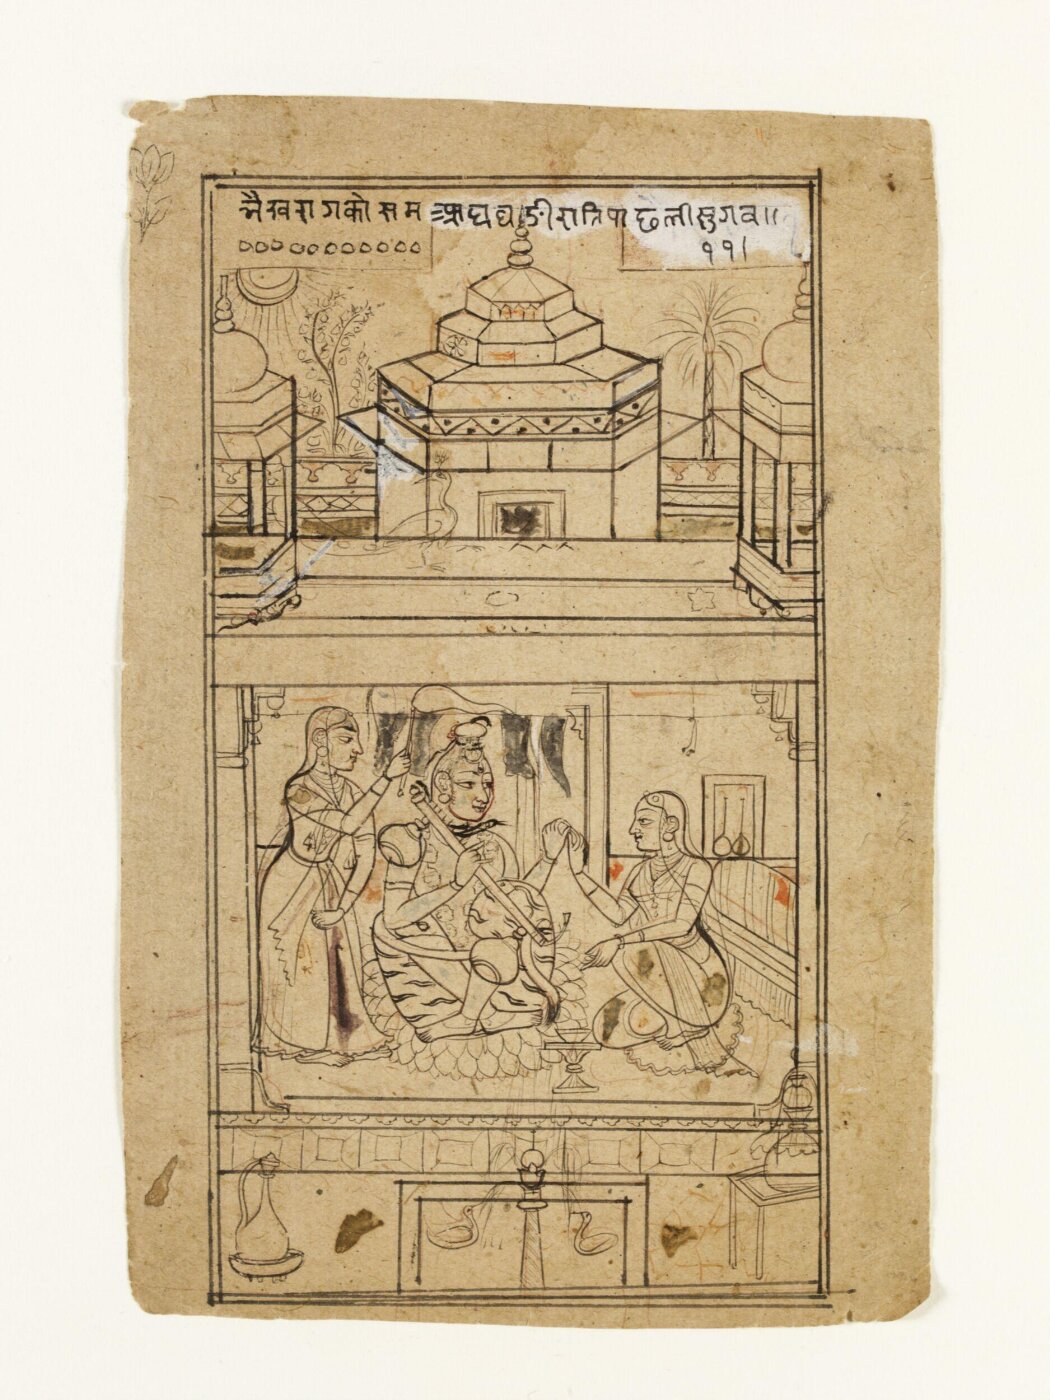 भैरव रागको सम घडी रात्रि पाछली सुगव॥
११।